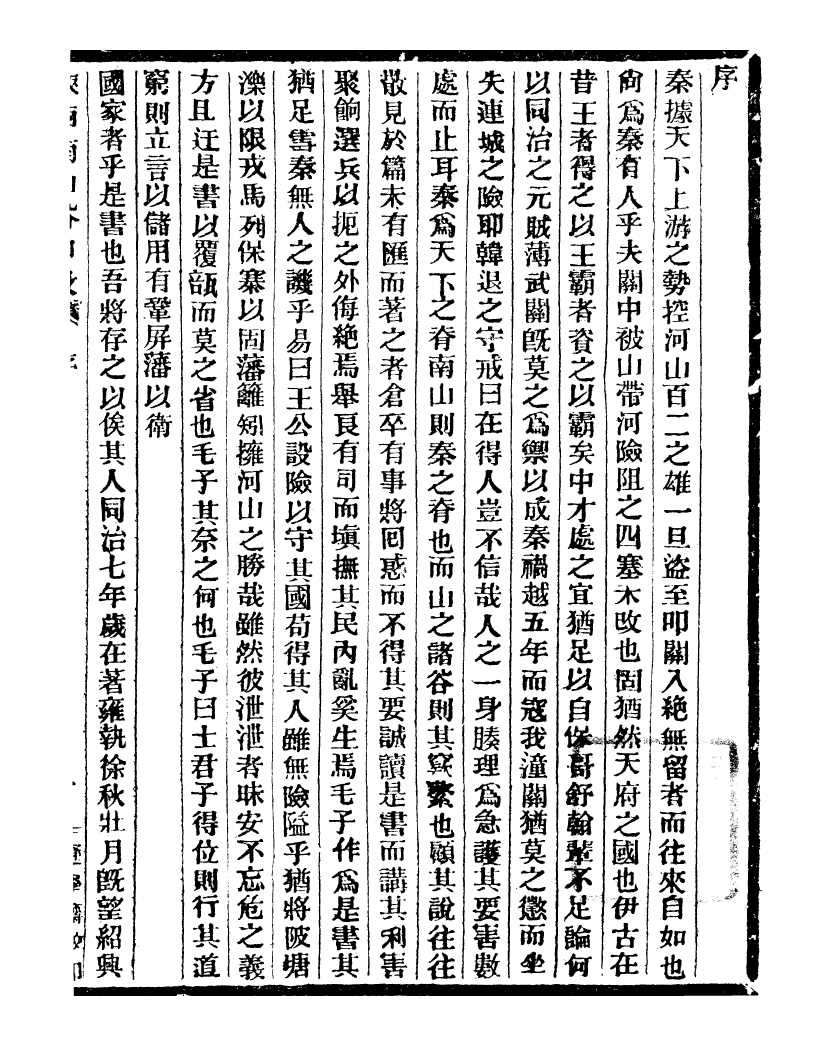 序
秦據天下上游之勢控河山百二之雄一旦盜至叩關入絶無留者而往來自如也
尙爲秦有人乎夫關中被山帶河險阻之四塞未改也固猶然天府之國也伊古在
昔王者得之以王霸者資之以霸矣中才處之宜猶足以自保哥舒翰輩不足論何
以同治之元賊薄武關旣莫之爲禦以成秦禍越五年而寇我潼關猶莫之懲而坐
失連城之險耶韓退之守戒曰在得人豈不信哉人之一身腠理爲急護其要害數
處而止耳秦爲天下之脊南山則秦之脊也而山之諸谷則其窾繫也顧其說往往
散見於篇未有匯而著之者倉卒有事將囘惑而不得其要誠讀是書而講其利害
聚餉選兵以扼之外侮絶焉舉良有司而塡撫其民內亂奚生焉毛子作爲是書其
猶足雪秦無人之譏乎易曰王公設險以守其國苟得其人雖無險隘乎猶將陂塘
濼以限戎馬列保寨以固藩籬矧擁河山之勝哉雖然彼泄泄者昧安不忘危之義
方且迂是書以覆瓿而莫之省也毛子其奈之何也毛子曰士君子得位則行其道
窮則立言以儲用有鞏屏藩以衛
國家者乎是書也吾將存之以俟其人同治七年歲在著雍執徐秋壯月旣望紹興